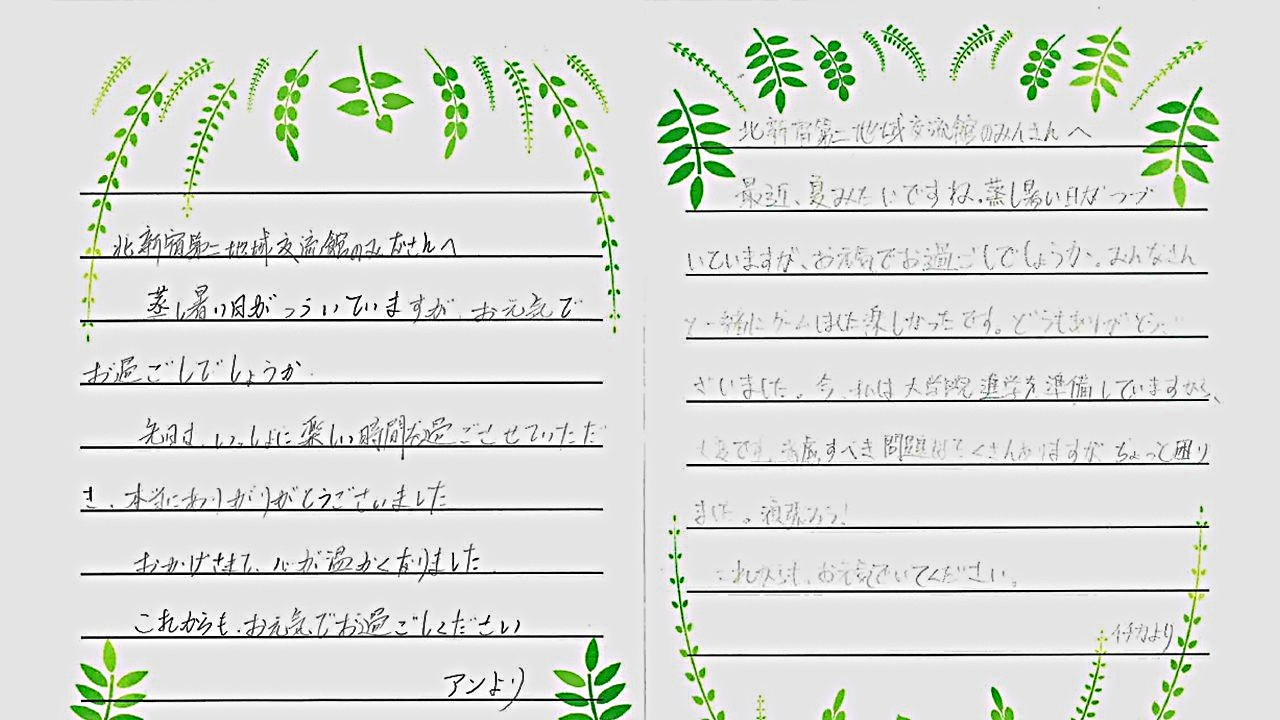 北新宿第二地域交流館のみなさんへ
蒸し暑い日がつづいていますが、お元気で
お過ごしでしょうか.
先日は、いっしょに楽しい時間を過ごさせていただ
き、本当にありがりがとうございました
おかげさまで、心が温かくなりました.
これからも、お元気でお過ごしください
アンより
北新宿第二地域交流館のみんさんへ
最近、夏みたいですね。蒸し暑い日がつづ
いていますが、お元気でお過ごしでしょうか。みんなさん
と一緒にゲームはした楽しかったです。どうもありがとうご
ざいました。今、私は大学院進学を準備していますから、
です。考慮すべき問題はたくさんありますが ちょっと困り
ました。頑張ろう!
これからも、お元気でいてください。
イチカより